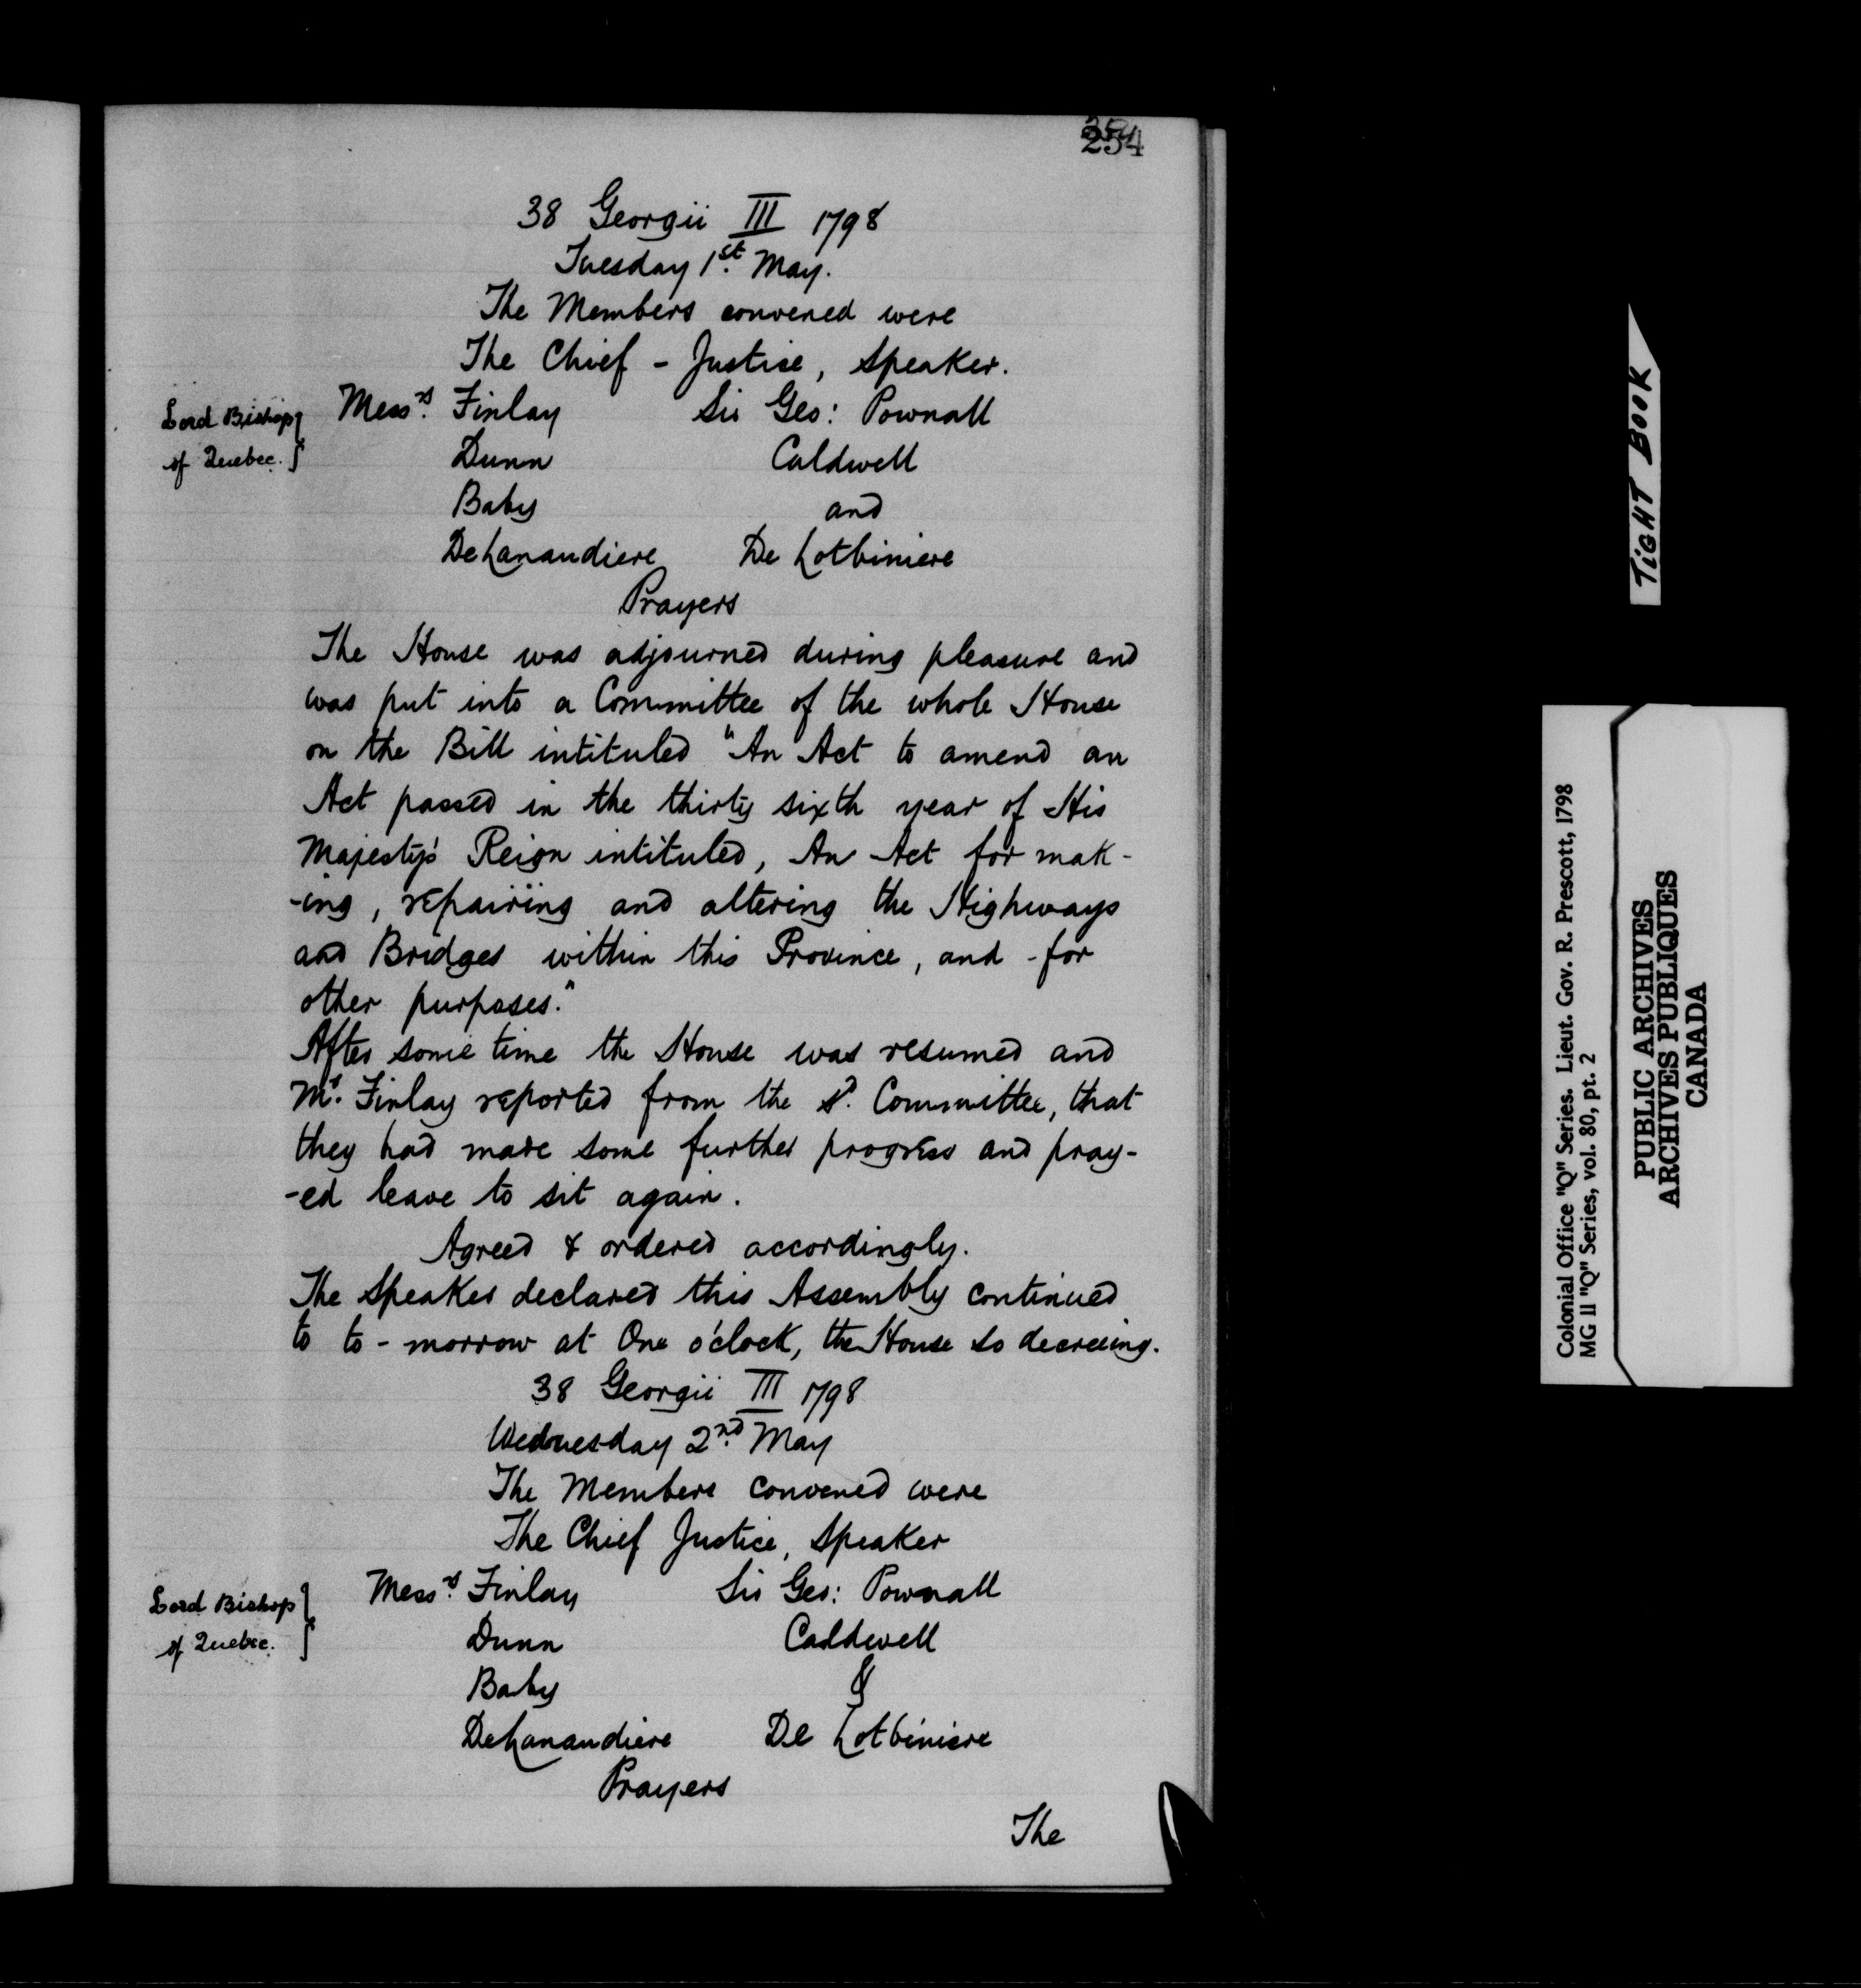 254
38 Georgii III 1798
Tuesday 1st. May.
The Members convened were
The Chief - Justice, Speaker.
Lord Bishop of Quebec. }
Messrs. Finlay Sir Geo: Pownall
Dunn Caldwell
Baby and
DeLanaudiere De Lotbiniere
Prayers
The House was adjourned during pleasure and
was put into a Committee of the whole House
on the Bill intituled "An Act to amend an
Act passed in the thirty sixth year of His
Majesty's Reign intituled, An Act for mak-
-ing, repairing and altering the Highways
and Bridges within this Province, and for
other purposes."
After some time the House was resumed and
Mr. Finlay reported from the sd. Committee, that
they had made some further progress and pray-
-ed leave to sit again.
Agreed & ordered accordingly.
The Speaker declared this Assembly continued
to to-morrow at One o'clock, the House so decreeing.
38 Georgii III 1798
Wednesday 2nd. May
The Members convened were
The Chief Justice, Speaker
Lord Bishop of Quebec. }
Messrs. Finlay Sir Geo: Pownall
Dunn Caldwell
Baby &
DeLanaudiere De Lotbiniere
Prayers
The
TIGHT BOOK
Colonial Office "Q" Series. Lieut. Gov. R. Prescott, 1798
MG 11 "Q" Series, vol. 80, pt. 2
PUBLIC ARCHIVES
ARCHIVES PUBLIQUES
CANADA